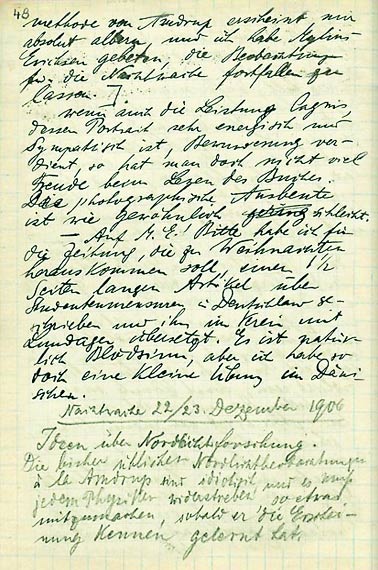 48
methode von Amdrup erscheint mir
absolut albern und ich habe Mylius-
Erichsen gebeten, die Beobachtung
für die Nachtwache fortfallen zu
lassen.]
wenn auch die Leistung Cagnis,
dessen Portrait sehr energisch und
sympatisch ist, Bewunderung ver-
dient, so hat man doch nicht viel
Freude beim Lesen des Buches.
Das photographische Ausbeute
ist wie gewöhnlich schlecht.
— Auf M. E.' Bitte habe ich für
die Zeitung, die zu Weihnachten
herauskommen soll, einen 1½
Seiten langen Artikel über
Studentenmensuren in Deutschland ge-
schrieben und ihn im Verein mit
Lundager übersetzt. Es ist natür-
lich Blödsinn, aber ich habe so
doch eine kleine Übung im Däni-
schen.
Nachtwache 22/23. Dezember 1906
Ideen über Nordlichtforschung.
Die bisher üblichen Nordlichtbeobachtungen
à la Amdrup sind idiotisch und es muß
jedem Physiker widerstreben so etwas
mitzumachen, sobald er die Erschei-
nung kennen gelernt hat.